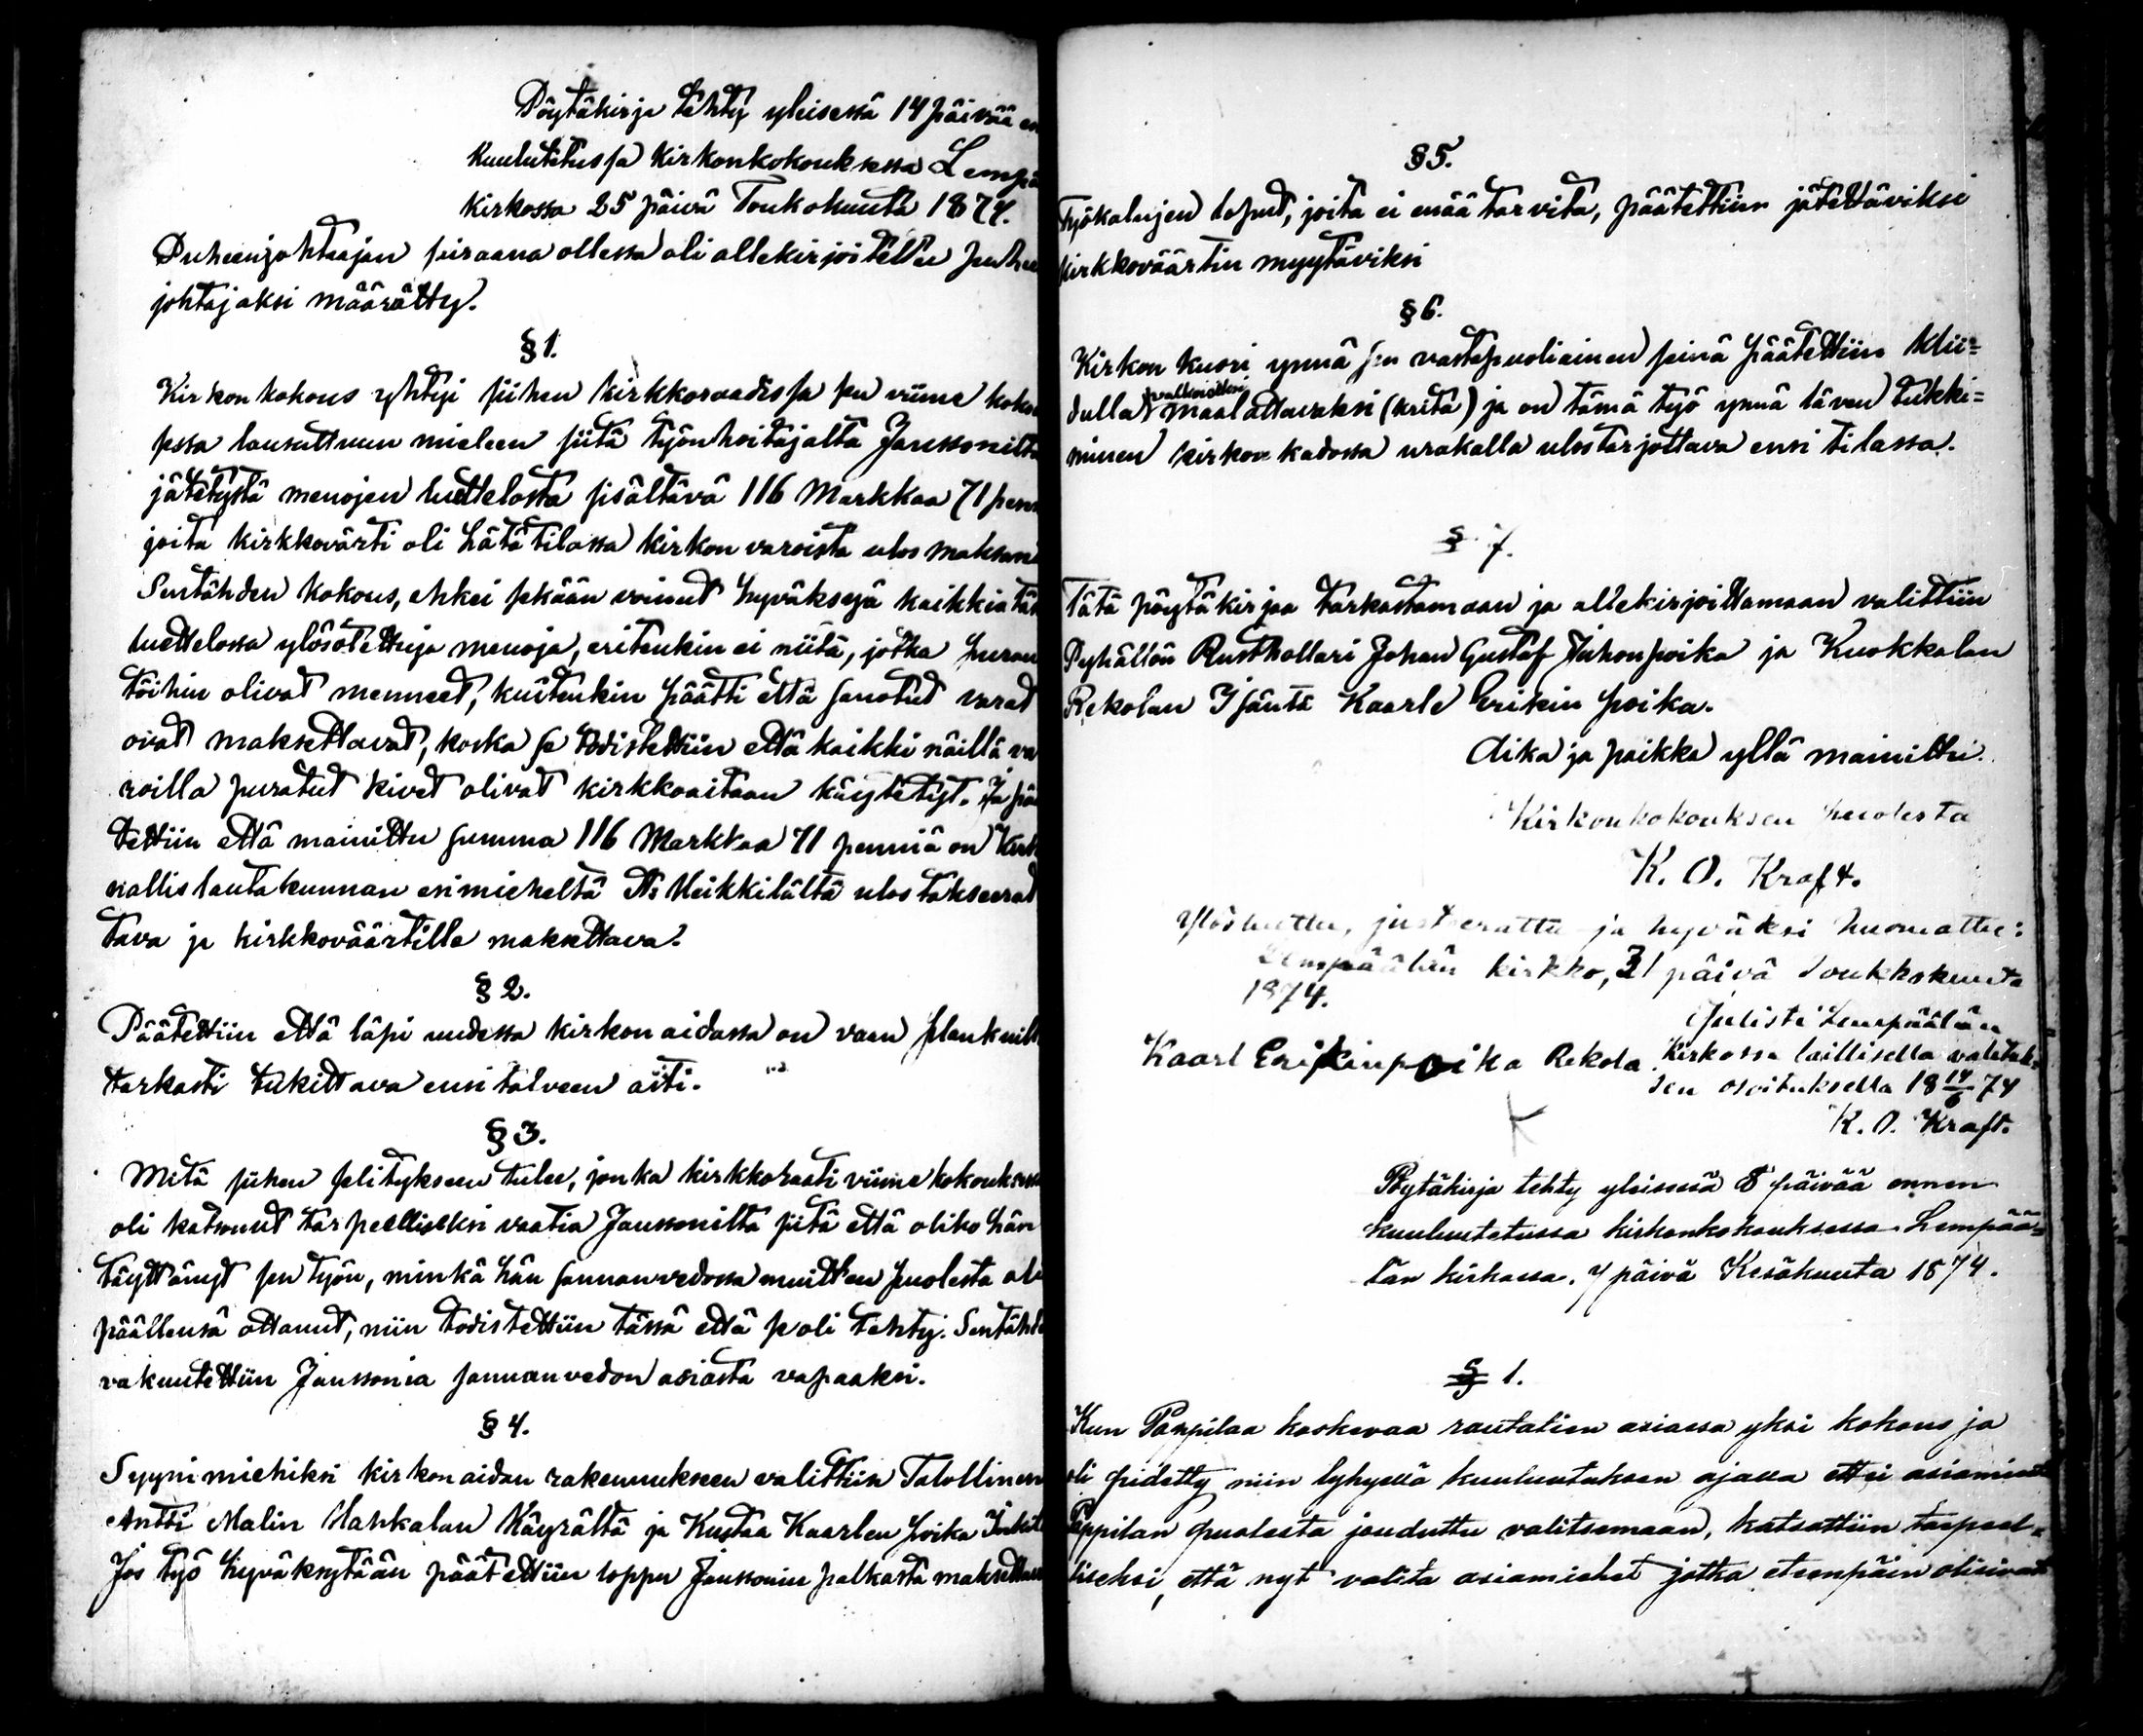 Pöytäkirja tehty yleisessä 14 päivää en
kuulutetussa kirkonkokouksessa Lempä
kirkossa 25 päivä Toukokuuta 1874.
Puheenjohtaajan sairaana ollessa oli allekirjoitettu puhee
johtajaksi määrätty.
§ 1.
Kirkonkokous yhtyi siihen kirkkoraadissa sen viime koko
ssa lausuttuun mieleen siitä työnhoitajalta Janssonilta
jätetystä menojen luettelosta sisältävä 116 Markkaa 71 pen
joita kirkkovärti oli hätätilassa kirkon varoista ulos maksan
Sentähden kokous, ehkei sekään voinut hyväksyä kaikkia täs
luettelossa ylösotettuja menoja, eritenkin ei niitä, jotka
töihin olivat menneet, kuitenkin päätti että sanotut varat
ovat maksettavat, koska se todistettiin että kaikki näillä va
roilla puratut kivet olivat kirkkoaitaan käytetyt. Ja pää
tettiin että mainittu summa 116 Markkaa 71 penniä on Kun
nallislautakunnan esimieheltä Heikkilältä ulos takseerat
tava ja kirkkoväärtille maksettava.
§ 2.
Päätettiin että läpi uudessa kirkon aidassa on vaan plankuilla
tarkasti tukittava ensi talveen asti.
§ 3.
Mitä siihen selitykseen tulee, jonka kirkkoraati viime kokouksessa
oli katsonut tarpeelliseksi vaatia Janssonilta siitä että oliko hän
täyttänyt sen työn, minkä hän sannanvedossa muitten puolesta oli
päällensä ottanut, niin todistettiin tässä että se oli tehty. Sentähde
vakuutettiin Janssonia sannanvedon asiasta vapaaksi.
§ 4.
Syynimiehiksi kirkonaidan rakennukseen valittiin Talollinen
Antti Malin Hahkalan Käyrältä ja Kustaa Kaarlen poika
Jos työ hyväksytään päätettiin loppu Janssonin palkasta maksettava
§ 5.
Työkalujen loput, joita ei enää tarvita, päätettiin jätettäviksi
kirkkoväärtin myytäviksi
§ 6.
Kirkon kuori ynnä sen vastapuoliainen seinä päätettiin klii=
dulla valkoisten maalattavaksi (krita) ja on tämä työ ynnä läven tukki=
minen kirkon kadossa urakalla ulostarjottava ensi tilassa.
§ 7.
Tätä pöytäkirjaa tarkastamaan ja allekirjoittamaan valittiin
Pyhällön Rusthollari Johan Gustaf Juhonpoika ja Kuokkalan
Rekolan Isäntä Kaarle Erikin poika.
Aika ja paikka yllä mainittu.
Kirkonkokouksen puolesta
K. O. Kraft.
Ylösluettu, justeerattu ja hyväksi huomattu:
Lempäälän kirkko, 31 päivä Toukkokuuta
1874.
Julisti Lempäälän
Kaarl Erikinpoika Rekola Kirkossa laillisella valituk-
sen osoituksella 18 14/6 74
K. O. Kraft.
Pöytäkirja tehty yleisessä 8 päivää ennen
kuuluutetussa kirkonkokouksessa Lempää=
län kirkossa, 7 päivä Kesäkuuta 1874.
§ 1.
Kun Pappilaa koskevaa rautatien asiassa yksi kokous jo
oli pidetty niin lyhyellä kuuluutuksen ajalla ettei asiamiestä
Pappilan puolesta jouduttu valitsemaan, katsottiin tarpeel=
liseksi, että nyt valita asiamiehet jotka eteenpäin olisivat